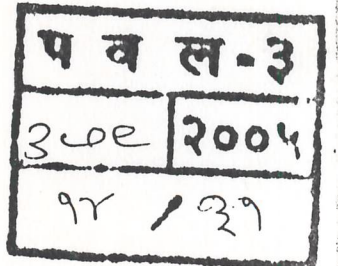 प व ल - ३
३७९ २००५
१४ / ३१